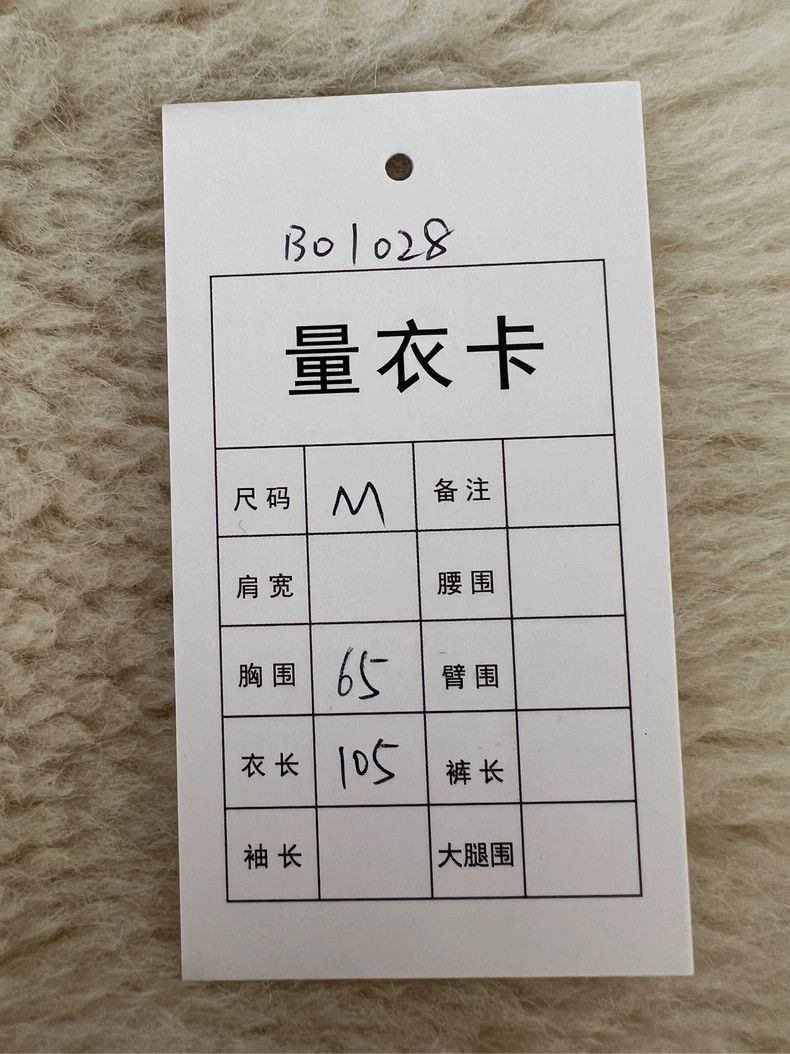 B01028
量衣卡
尺码 M 备注
肩宽 腰围
胸围 65 臂围
衣长 105 裤长
袖长 大腿围